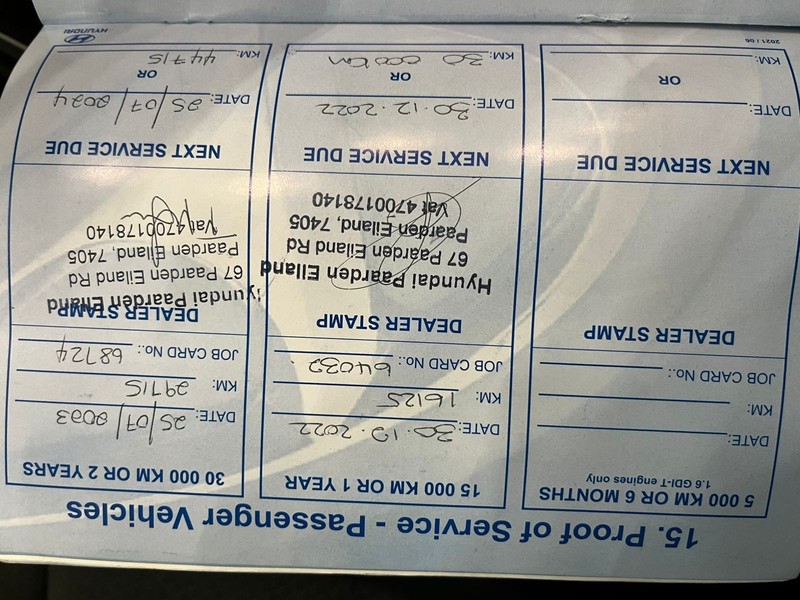 15. Proof of Service - Passenger Vehicles
5 000 KM OR 6 MONTHS
1.6 GDI-T engines only
DATE:
KM:
JOB CARD No.:
DEALER STAMP
NEXT SERVICE DUE
DATE:
OR
KM:
15 000 KM OR 1 YEAR
DATE: 30.12.2022
KM: 16125
JOB CARD No.: 64032
DEALER STAMP
Hyundai Paarden Eiland
67 Paarden Eiland Rd
Paarden Eiland, 7405
Vat 4700178140
NEXT SERVICE DUE
DATE: 30.12.2022
OR
KM: 30 000km
30 000 KM OR 2 YEARS
DATE: 25/07/2023
KM: 29715
JOB CARD No.: 68724
DEALER STAMP
Hyundai Paarden Eiland
67 Paarden Eiland Rd
Paarden Eiland, 7405
Vat 4700178140
NEXT SERVICE DUE
DATE: 25/07/2024
OR
KM: 44715
2021 / 06
HYUNDAI